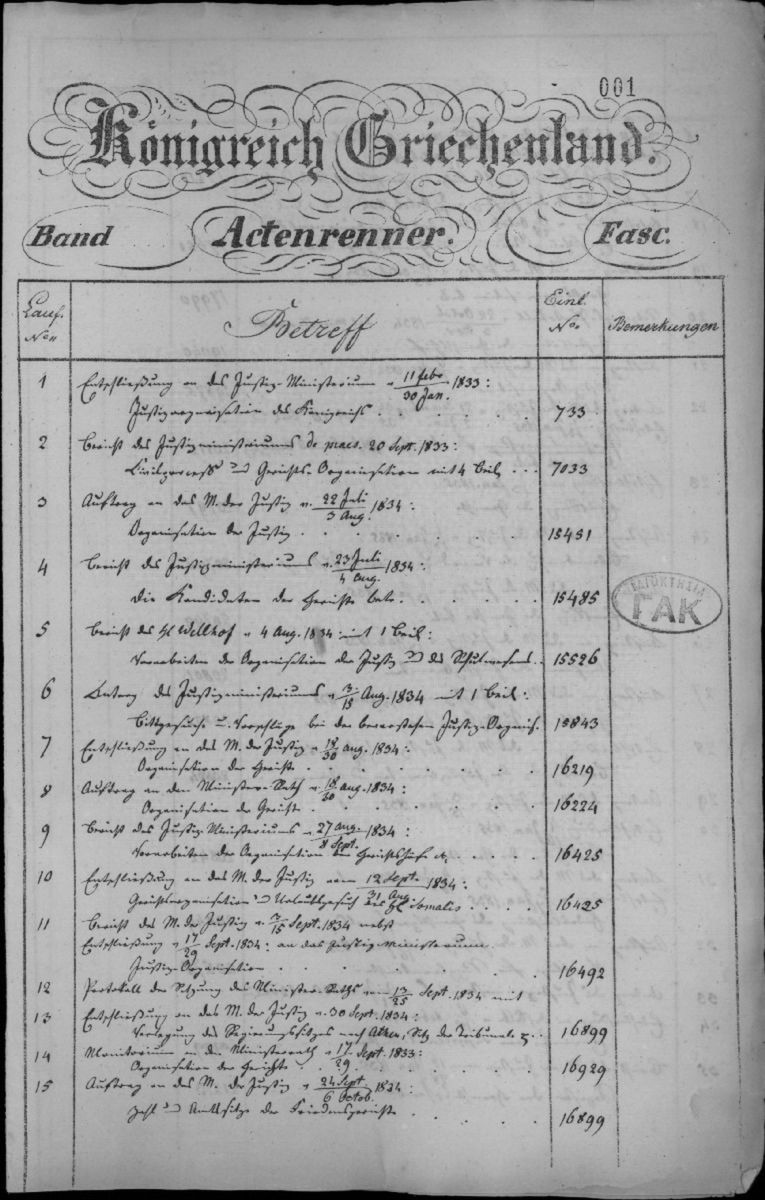 001
Königreich Griechenland.
Band Actenrenner. Fasc.
Lauf. No. Betreff Einl. No. Bemerkungen
1 Entschließung an das Justiz-Ministerium v. 11 Febr./30 Jan. 1833:
Justizorganisation des Königreichs 733
2 Bericht des Justizministeriums de praes. 20 Sept. 1833:
Civilprocess und Gerichts-Organisation mit 4 Beil. 7033
3 Auftrag an das M. der Justiz v. 22 Juli/3 Aug. 1834:
Organisation der Justiz 15431
4 Bericht des Justizministeriums v. 23 Juli/4 Aug. 1834:
Die Kandidaten der Gerichte betr. 15485
ΙΔΙΟΚΤΗΣΙΑ ΓΑΚ
5 Bericht des H Wellhof v. 4 Aug. 1834 mit 1 Beil:
Vorarbeiten der Organisation der Justiz und des Schulwesens 15526
6 Antrag des Justizministeriums v. 3/15 Aug. 1834 mit 1 Beil:
Bittgesuche u. Vorschläge bei der bevorstehen Justiz-Organis. 15843
7 Entschließung an das M. der Justiz v. 18/30 Aug. 1834:
Organisation der Gerichte 16219
8 Auftrag an den Minister-Rath v. 18/30 Aug. 1834:
Organisation der Gerichte 16224
9 Bericht des Justiz-Ministeriums v. 27 Aug./8 Sept. 1834:
Vorarbeiten der Organisation der Gerichtshöfe 16425
10 Entschließung an das M. der Justiz vom 12 Sept./31 Aug. 1834:
Gerichtsorganisation u. Urlaubsgesuch des H. Somalis 16425
11 Bericht des M. der Justiz v. 3/15 Sept. 1834 nebst
Entschließung v. 17/29 Sept. 1834: an das Justiz-Ministerium
Justiz-Organisation 16492
12 Protokoll der Sitzung des Minister-Raths vom 13/25 Sept. 1834 mit
13 Entschließung an das M. der Justiz v. 30 Sept. 1834:
Verlegung des Regierungssitzes nach Athen, Sitz der Tribunale 16899
14 Monitorium an den Ministerrath v. 17/29 Sept. 1833:
Organisation der Gerichte 16929
15 Auftrag an das M. der Justiz v. 24 Sept./6 Octob. 1834:
Zahl und Amtssitze der Friedensgerichte 16899